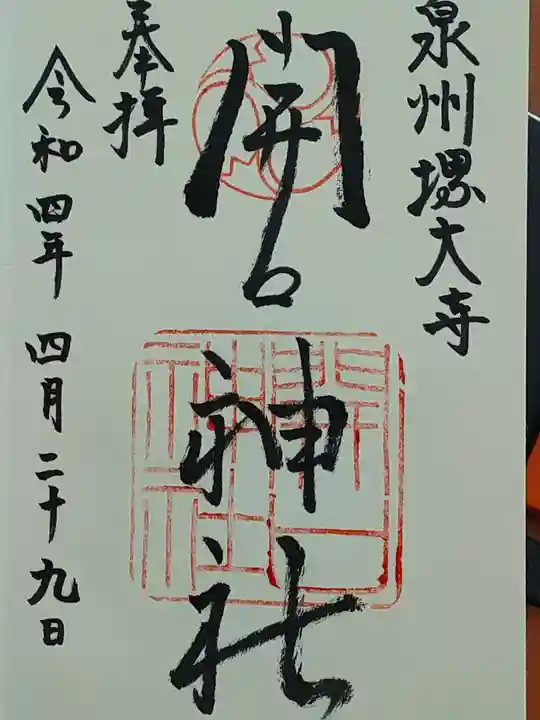 泉州堺大寺
開口神社
奉拝
令和四年 四月二十九日
開口神社